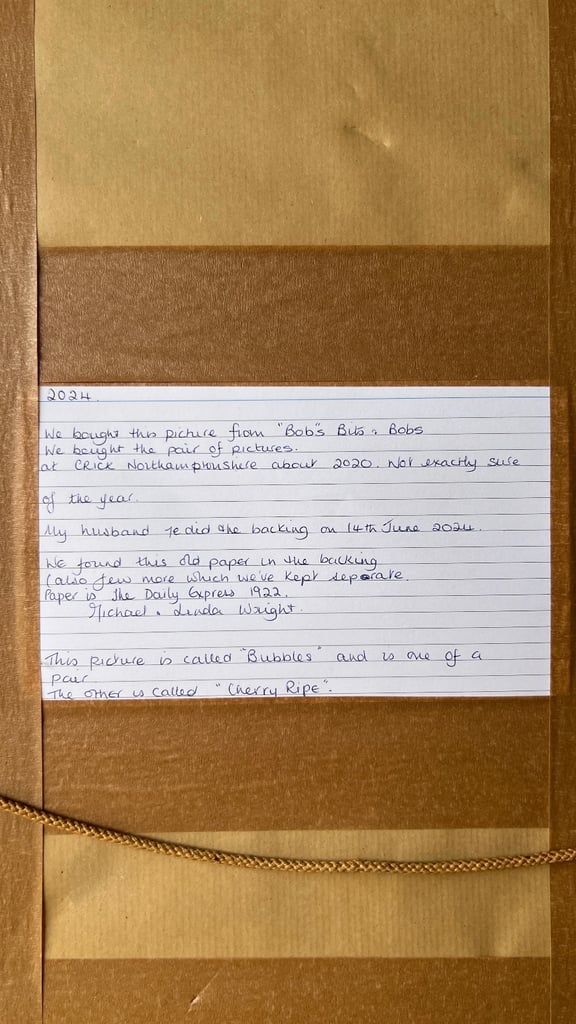 2024.
We bought this picture from "Bob's Bits & Bobs
We bought the pair of pictures.
at CRICK Northamptonshire about 2020. Not exactly sure
of the year.
My husband redid the backing on 14th June 2024.
We found this old paper in the backing
(also few more which we've kept separate.
Paper is The Daily Express 1922.
Michael & Linda Wright.
This picture is called "Bubbles" and is one of a
pair
The other is called "Cherry Ripe".